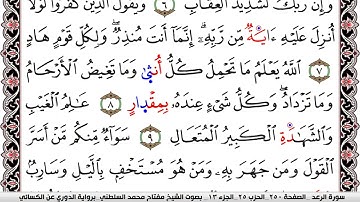 وَإِنَّ رَبَّكَ لَشَدِيدُ الْعِقَابِ ٦ وَيَقُولُ الَّذِينَ كَفَرُوا لَوْلَا
أُنزِلَ عَلَيْهِ ءَايَةٌ مِّن رَّبِّهِ إِنَّمَا أَنتَ مُنذِرٌ وَلِكُلِّ قَوْمٍ هَادٍ
٧ اللَّهُ يَعْلَمُ مَا تَحْمِلُ كُلُّ أُنثَىٰ وَمَا تَغِيضُ الْأَرْحَامُ
وَمَا تَزْدَادُ وَكُلُّ شَيْءٍ عِندَهُ بِمِقْدَارٍ ٨ عَالِمُ الْغَيْبِ
وَالشَّهَادَةِ الْكَبِيرُ الْمُتَعَالِ ٩ سَوَاءٌ مِّنكُم مَّنْ أَسَرَّ
الْقَوْلَ وَمَن جَهَرَ بِهِ وَمَنْ هُوَ مُسْتَخْفٍ بِاللَّيْلِ وَسَارِبٌ
سورة الرعد _الصفحة ٢٥٠_ الحزب ٢٥_ الجزء ١٣_ بصوت الشيخ مفتاح محمد السلطني _برواية الدوري عن الكسائي